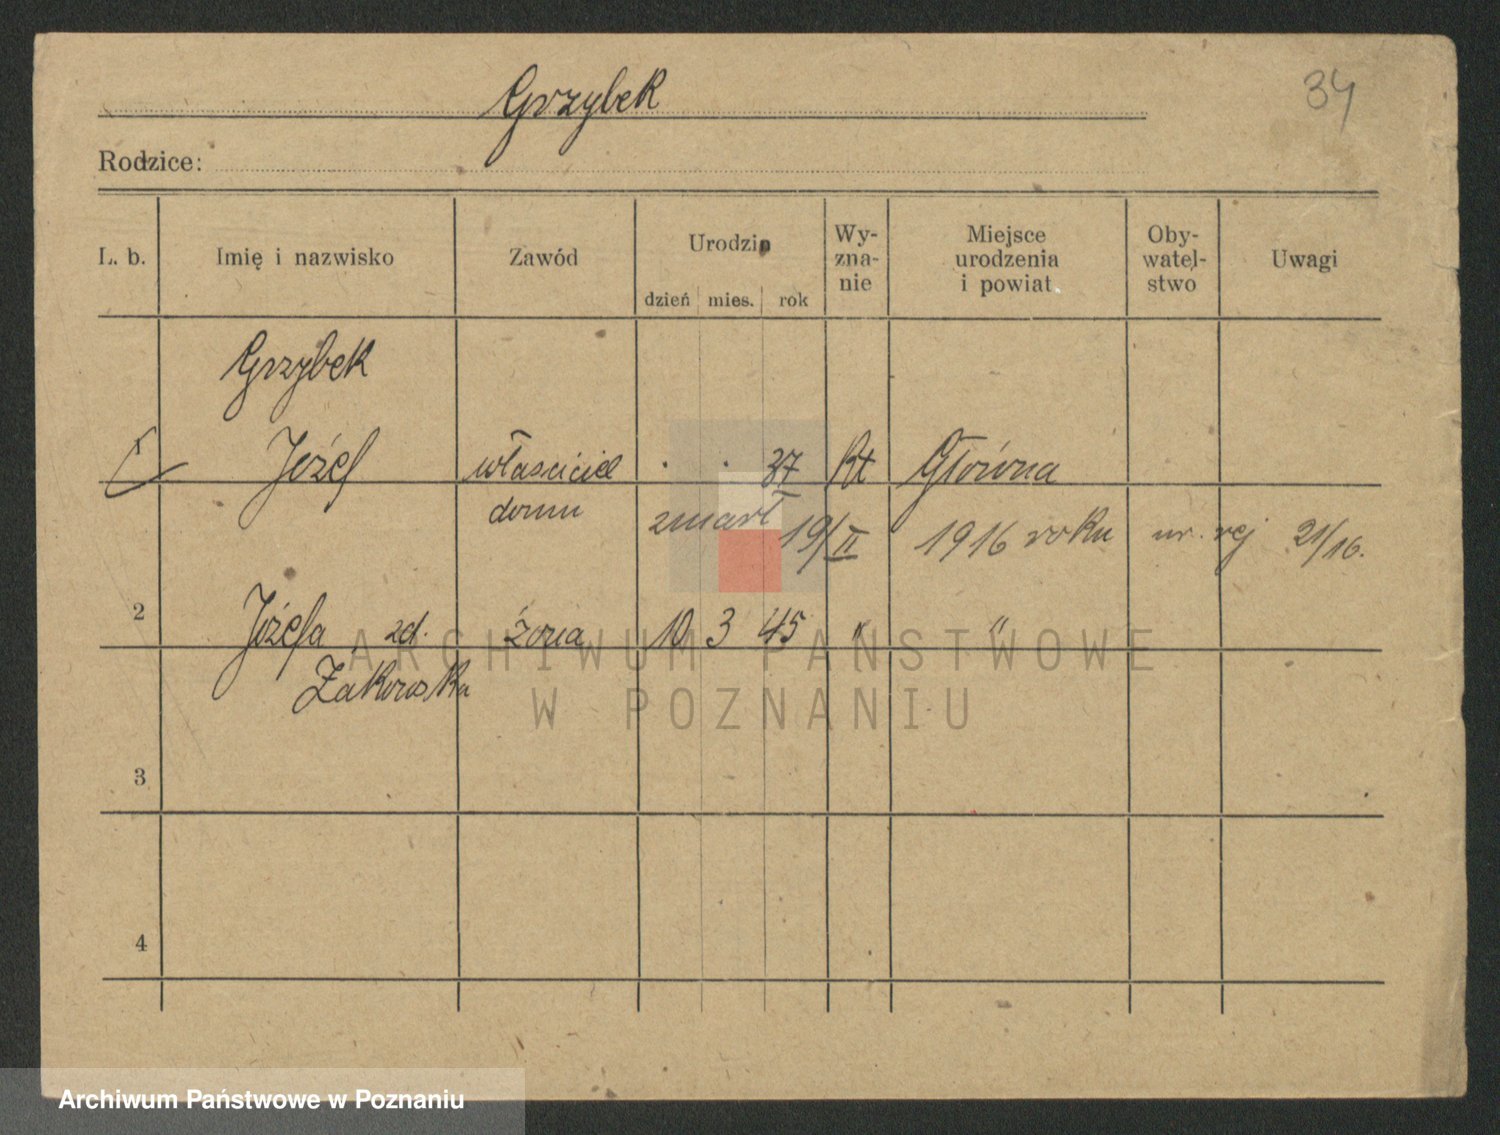 Grzybek
34
Rodzice:
L. b. Imię i nazwisko Zawód Urodzin dzień mies. rok Wy-zna-nie Miejsce urodzenia i powiat. Oby-watel-stwo Uwagi
Grzybek
1 Józef właściciel . . 37 kt Główna
domu zmarł 19/II 1916 roku nr. rej 21/16.
2 Józefa zd. żona 10 3 45 " "
Żakowska
3
4
ARCHIWUM PAŃSTWOWE
W POZNANIU
Archiwum Państwowe w Poznaniu